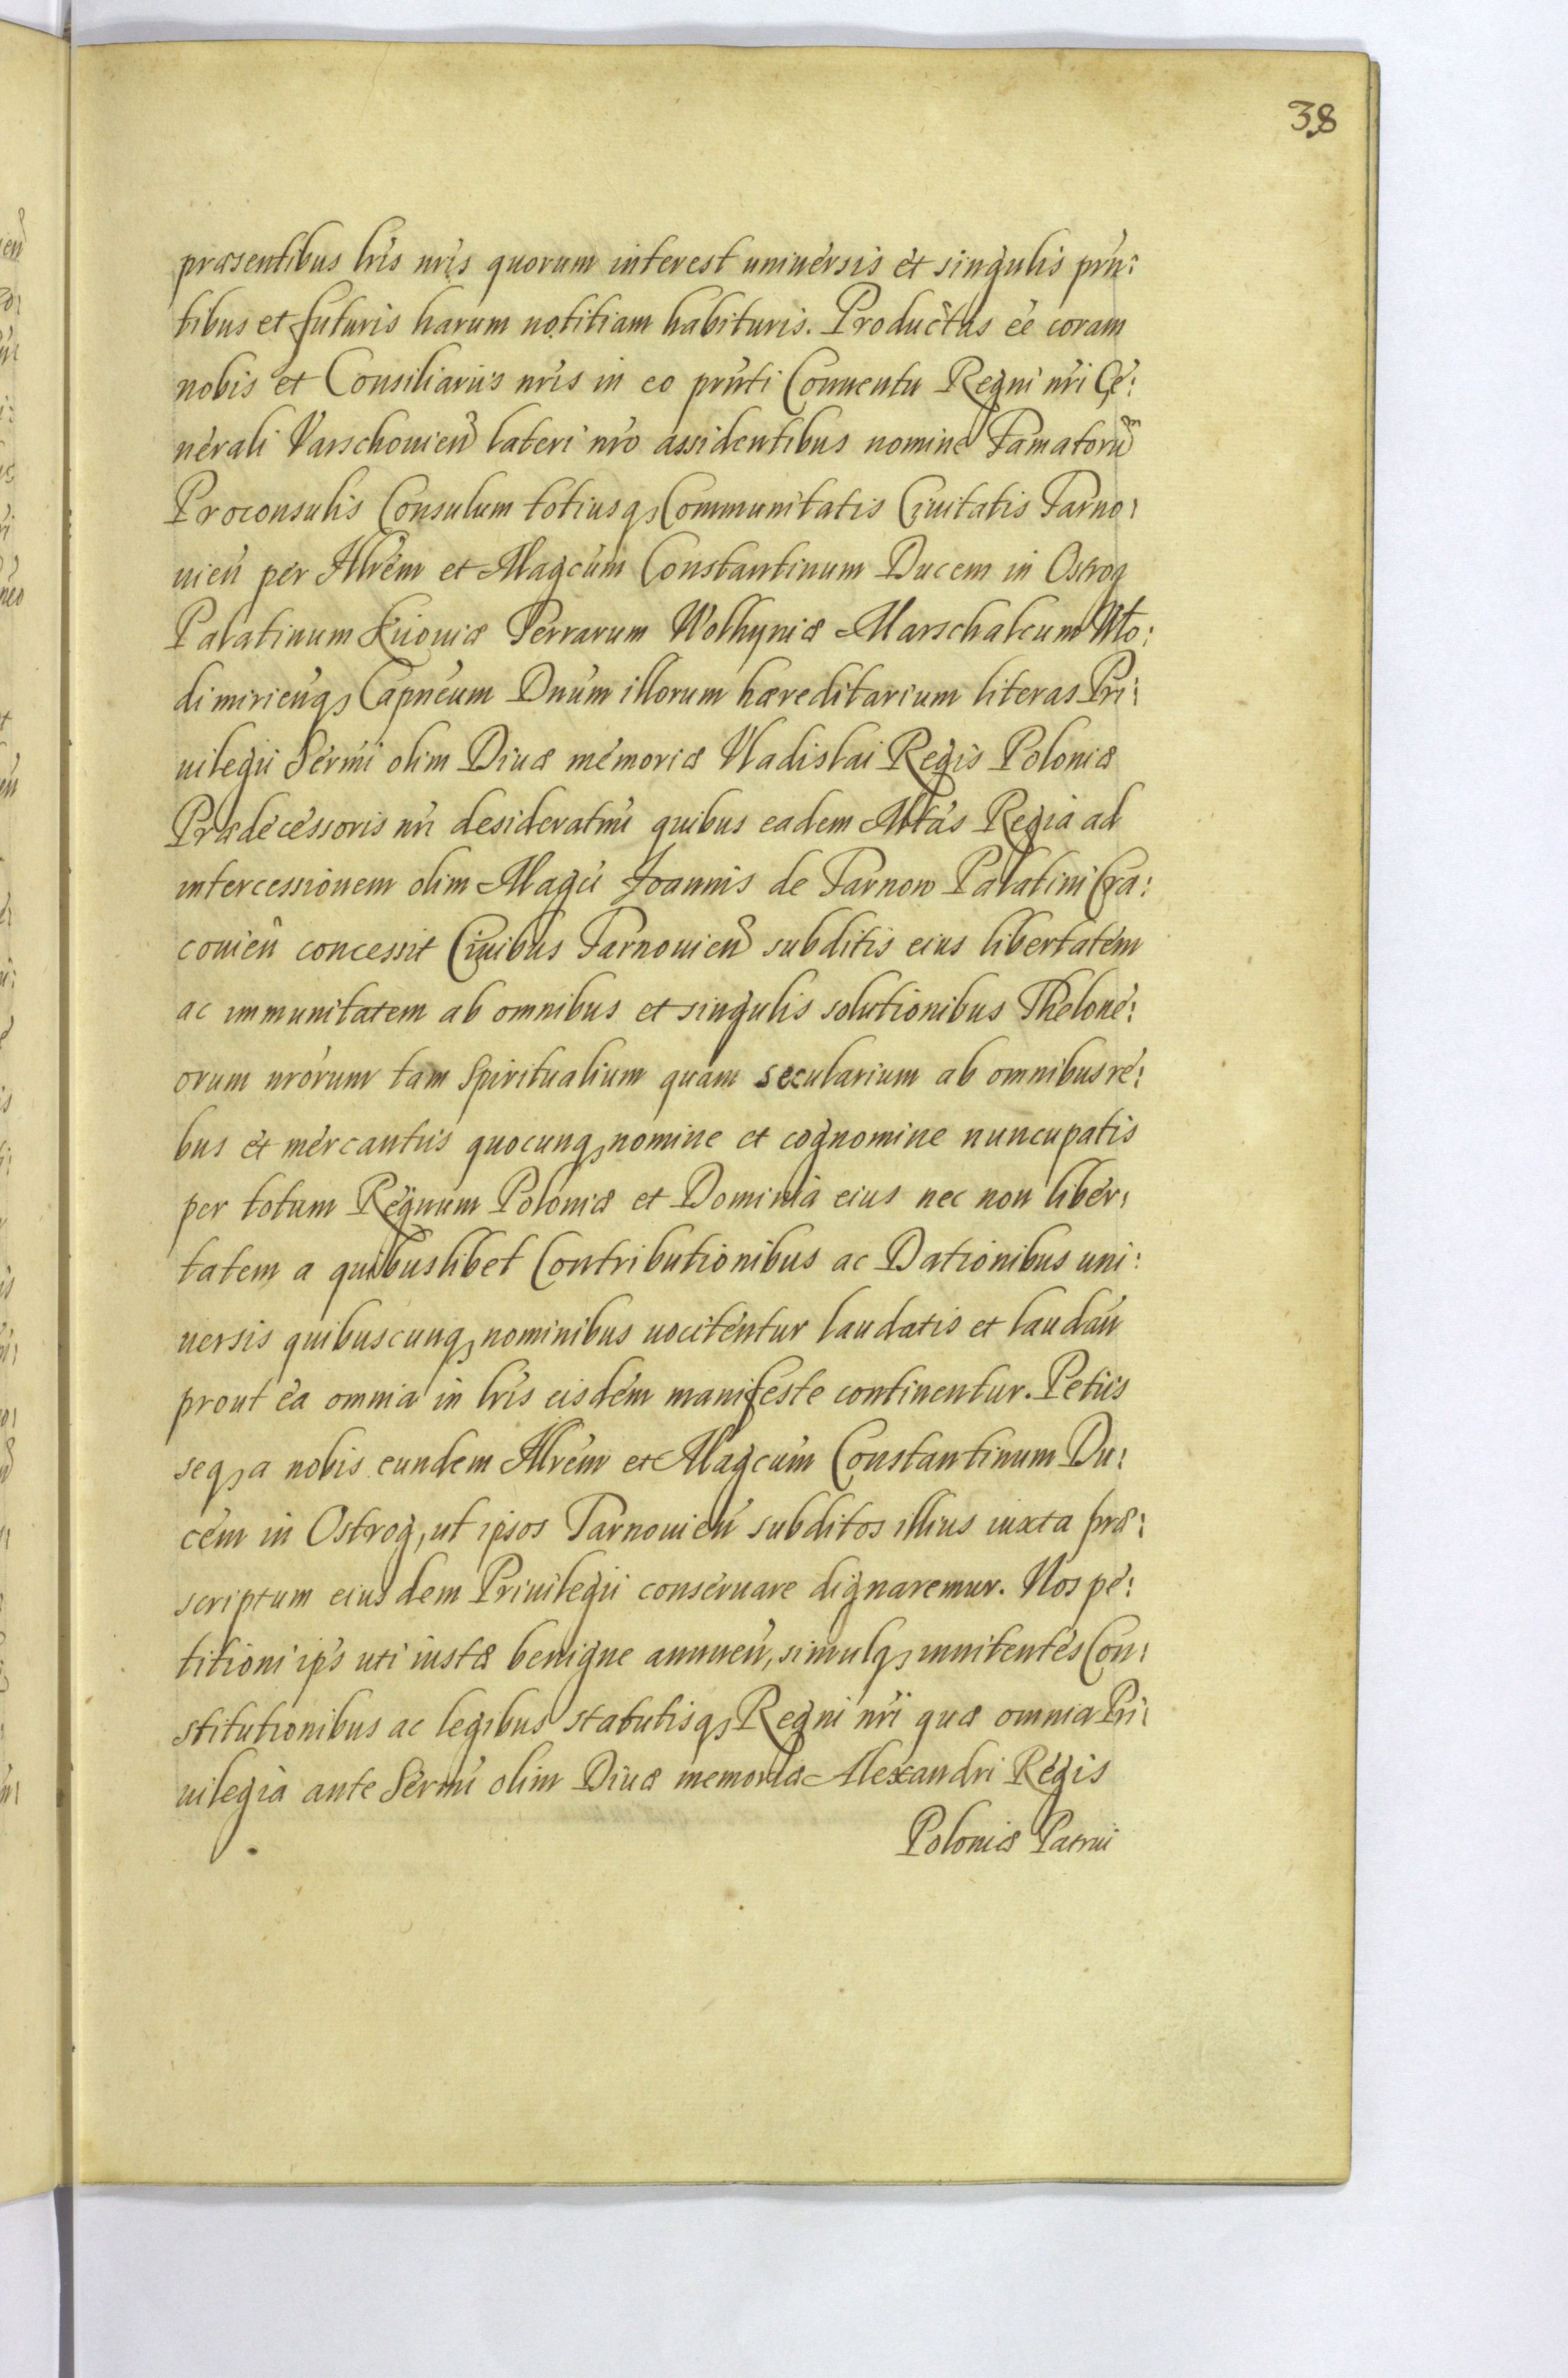 38
præsentibus lris nris quorum interest uniuersis et singulis prn:
tibus et futuris harum notitiam habituris. Productas ee coram
nobis et Consiliariis nris in eo prnti Conuentu Regni nri Ge:
nerali Varschouien lateri nro assidentibus nomine Famatorum
Proconsulis Consulum totiusq, Communitatis Ciuitatis Tarno:
uien per Illrem et Magcum Constantinum Ducem in Ostrog
Palatinum Kiiouiæ Terrarum Wolhyniæ Marschalcum Wlo:
dimirienq, Capneum Dnum illorum hæreditarium literas Pri:
uilegii Sermi olim Diuæ memoriæ Vladislai Regis Poloniæ
Prædecessoris nri desideratmi quibus eadem Mtas Regia ad
intercessionem olim Magci Joannis de Tarnow Palatini Cra:
couien concessit Ciuibus Tarnouien subditis eius libertatem
ac immunitatem ab omnibus et singulis solutionibus Thelone:
orum nrorum tam Spiritualium quam secularium ab omnibus re:
bus et mercantiis quocunq, nomine et cognomine nuncupatis
per totum Regnum Poloniæ et Dominia eius nec non liber:
tatem a quibuslibet Contributionibus ac Dationibus uni:
uersis quibuscunq, nominibus uocitentur laudatis et laudan
prout ea omnia in lris eisdem manifeste continentur. Petiis
seq, a nobis eundem Illrem et Magcum Constantinum Du:
cem in Ostrog, ut ipsos Tarnouien subditos illius iuxta præ:
scriptum eiusdem Priuilegii conseruare dignaremur. Nos pe:
titioni ips uti iustæ benigne annuen, simulq, innitentes Con:
stitutionibus ac legibus statutisq, Regni nri quæ omnia Pri:
uilegia ante Sermi olim Diuæ memoriæ Alexandri Regis
Poloniæ Patrui